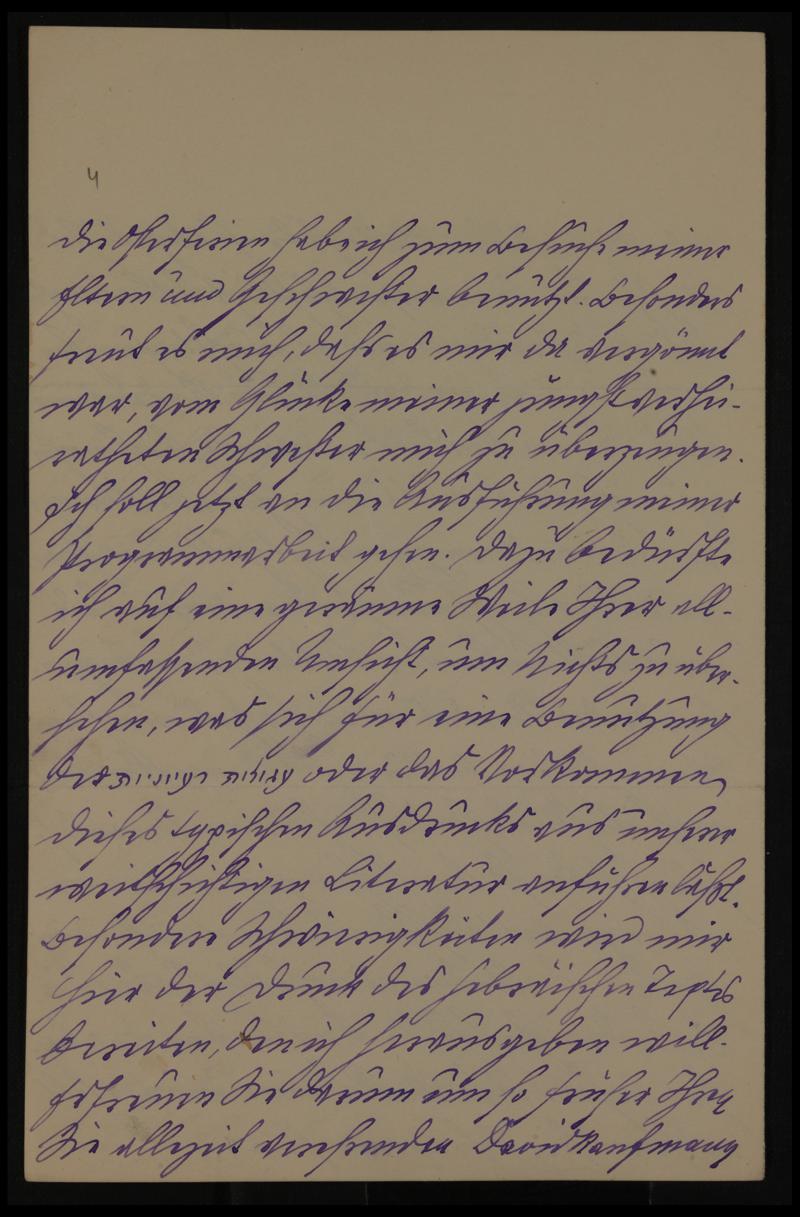 4
die Osterferien habe ich zum Besuche meiner
Eltern und Geschwister benützt. Besonders
freut es mich, daß es mir da vergönnt
war, vom Glücke meiner jüngst verhei-
ratheten Schwester mich zu überzeugen.
Ich soll jetzt an die Ausführung meiner
Programmarbeit gehen. Dazu bedürfte
ich auf eine geraume Weile Ihrer all-
umfassenden Umsicht, um Nichts zu über-
sehen, was sich für eine Benutzung
der עגולות רעיוניות oder das Vorkommen
dieses typischen Ausdrucks aus unserer
weitschichtigen Literatur anführen läßt.
Besondere Schwierigkeiten wird mir
hier der Druck des hebräischen Textes
bereiten, den ich herausgeben will.
Erfreuen Sie darum um so früher Ihren
Sie allezeit verehrenden David Kaufmann